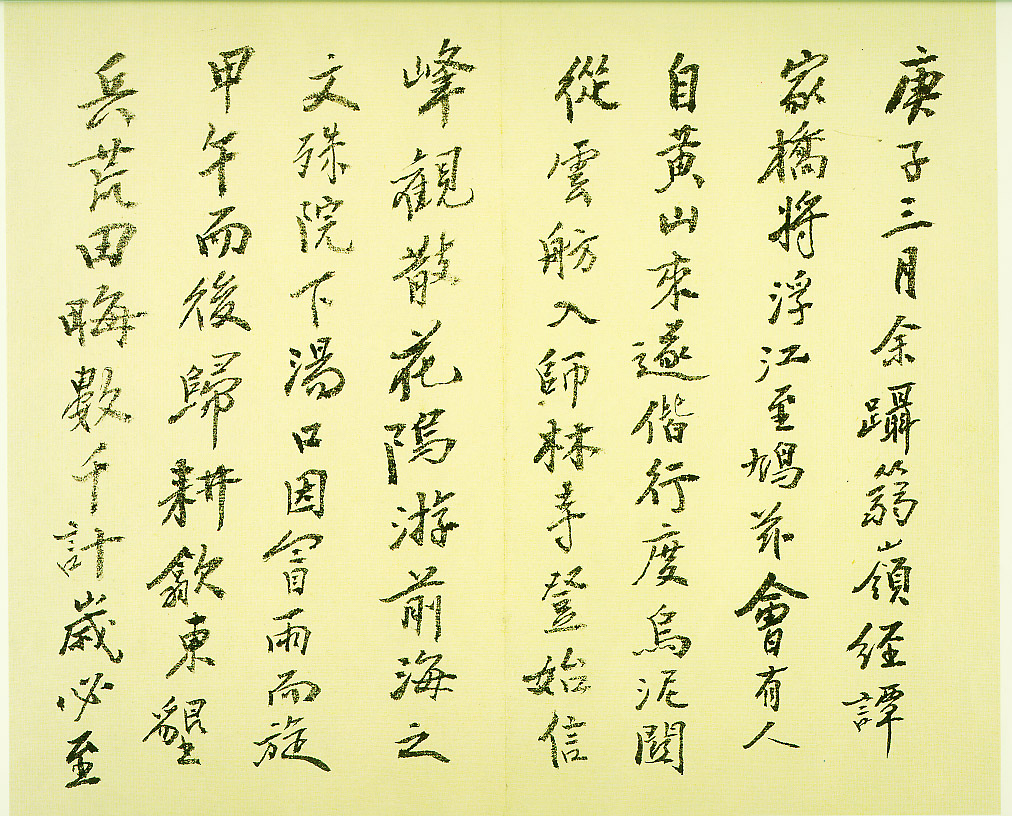 庚子三月余躡箬嶺經譚
家橋將浮江至鳩茲會有人
自黃山來遂偕行度烏泥關
從雲舫入師林寺登始信
峰觀散花隖游前海之
文殊院下湯口因冒雨而旋
甲午而後歸耕歙東墾
兵荒田畮數千計歲必至